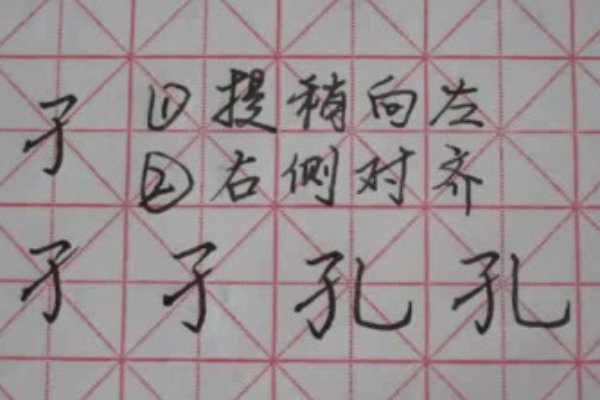 孑 ①提稍向左
②右侧对齐
孑 孑 孔 孔